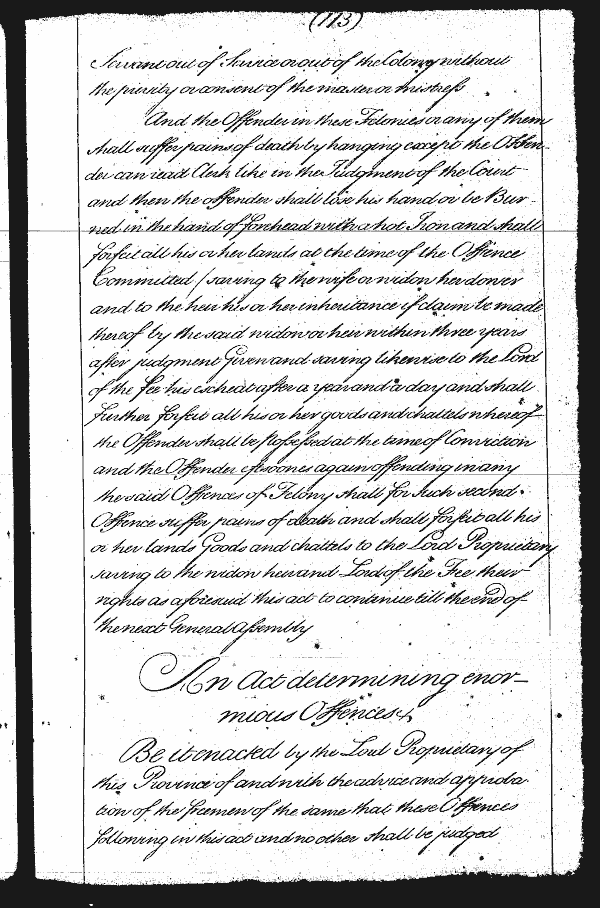 (113)
Servant out of Service or out of the Colony without
the privity or consent of the master or mistress
And the Offender in these Felonies or any of them
shall suffer pains of death by hanging except the Offen-
der can read Clerk like in the Judgment of the Court
and then the offender shall lose his hand or be Bur-
ned in the hand of forehead with a hot Iron and shall
forfeit all his or her lands at the time of the Offence
Committed / saving to the wife or widow her dower
and to the heir his or her inheritance if claim be made
thereof by the said widow or heir within three years
after judgment Given and saving likewise to the Lord
of the fee his escheat after a year and a day and shall
further forfeit all his or her goods and chattels whereof
the Offender shall be possessed at the time of Conviction
and the Offender eftsoones again offending in any
the said Offences of Felony shall for such second
Offence suffer pains of death and shall forfeit all his
or her lands Goods and chattels to the Lord Proprietary
saving to the widow heir and Lord of the Fee their
rights as aforesaid this act to continue till the end of
the next General Assembly
An Act determining enor-
mious Offences
Be it enacted by the Lord Proprietary of
this Province of and with the advice and approba
tion of the freemen of the same that these Offences
following in this act and no other shall be judged